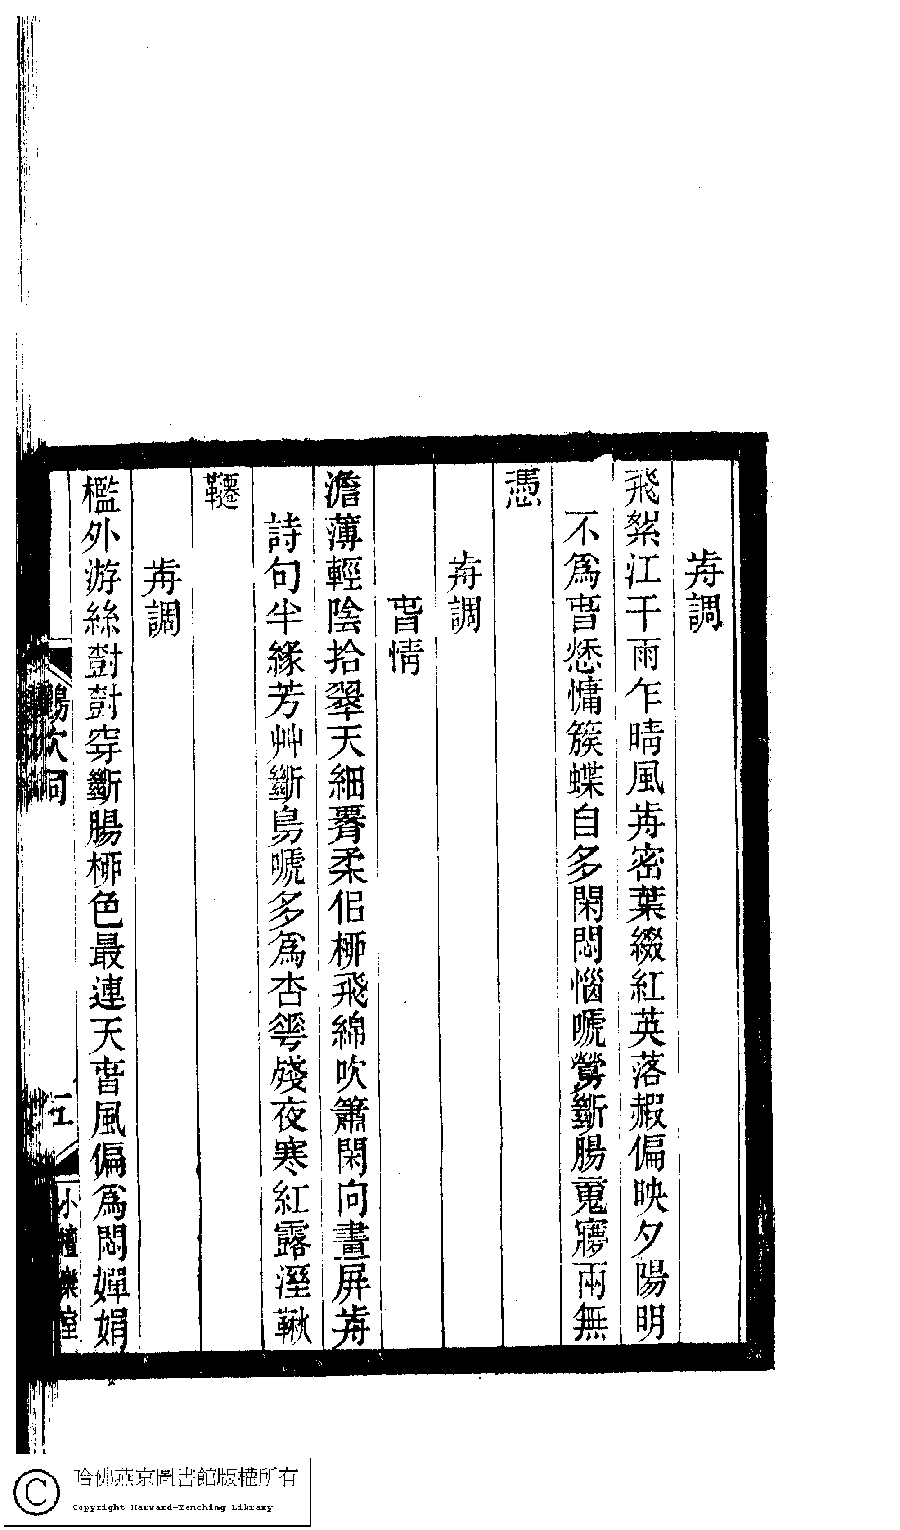 歬調
飛絮江干雨乍晴風歬密葉綴紅英落赮偏映夕陽明
不爲旾愁慵簇蝶自多閑悶惱嗁鶯斷腸䰟寱兩無
憑
歬調
旾情
澹薄輕陰拾翠天細霫柔佀桺飛綿吹簫閑向畫屏歬
詩句半緣芳艸斷鳥嗁多爲杏𠌶殘夜寒紅露溼鞦
韆
歬調
檻外游絲對對穿斷腸桺色最連天旾風偏爲悶嬋娟
五
小檀欒室
哈佛燕京圖書館版權所有
Copyright Harvard-Yenching Library